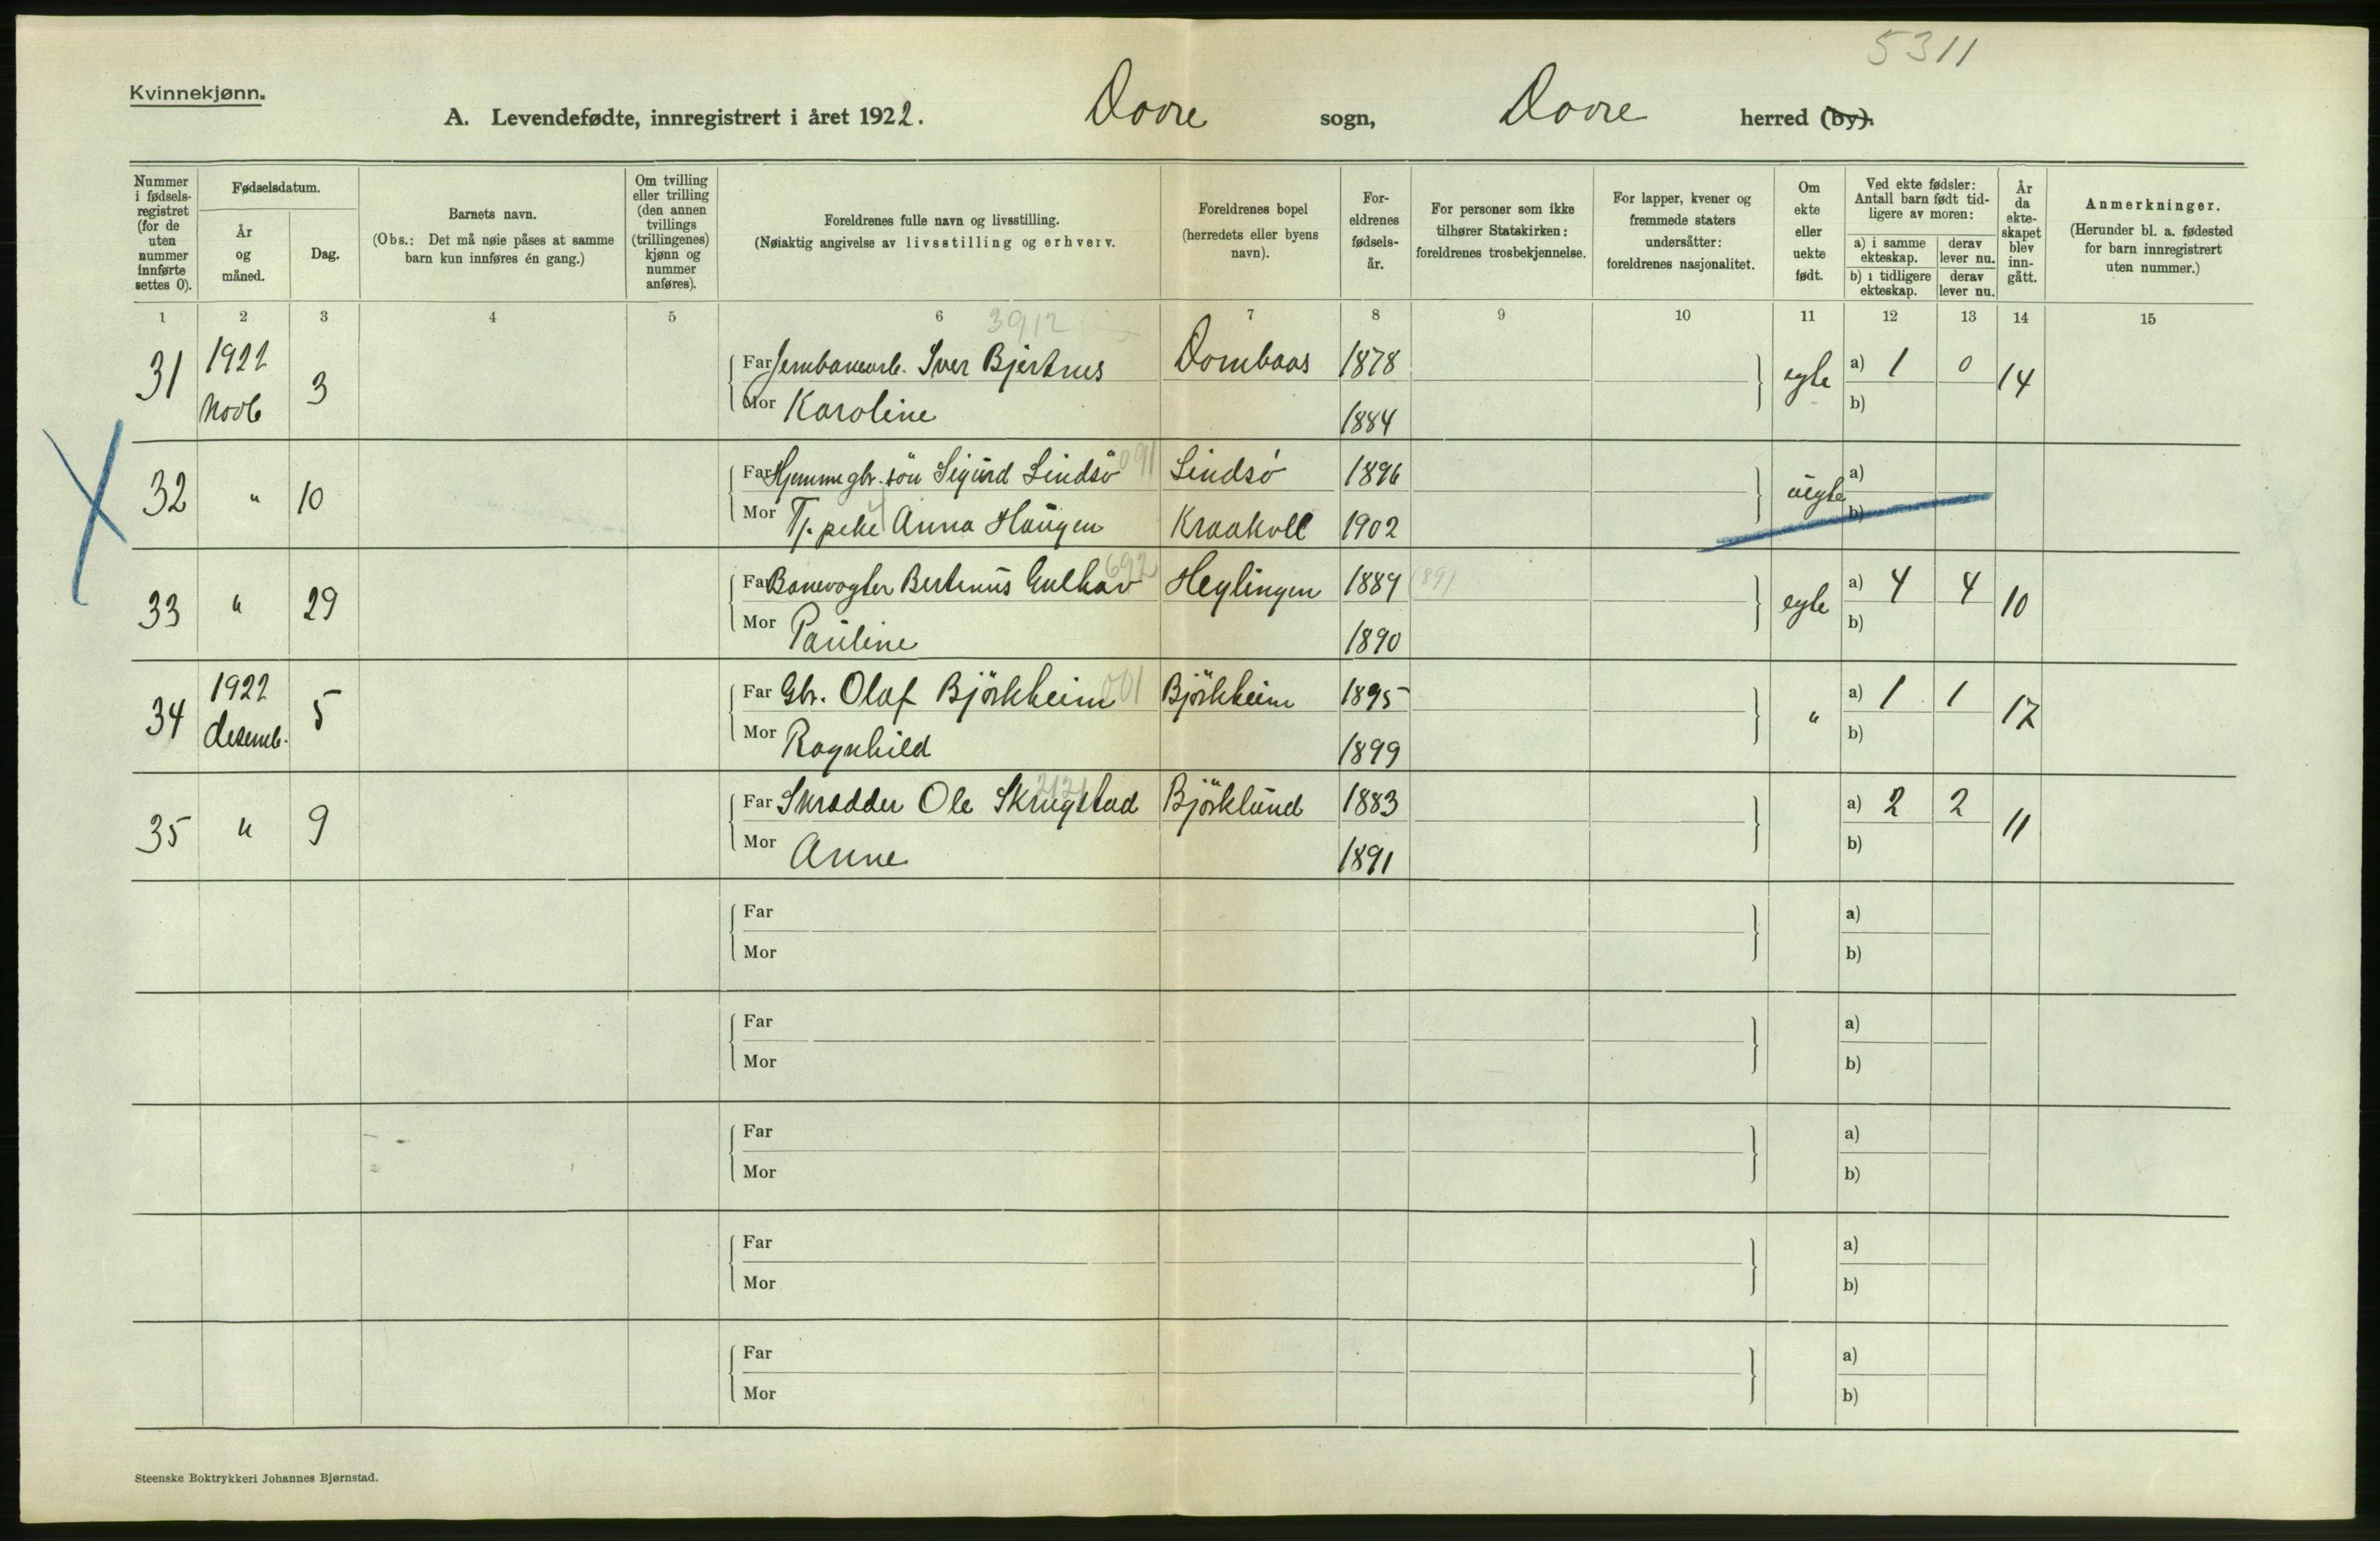 5311
Kvinnekjønn.
A. Levendefødte, innregistrert i året 1922. Dovre sogn, Dovre herred (by).
Nummer i fødsels-registret (for de uten nummer innførte settes 0).
Fødselsdatum.
År og måned.
Dag.
Barnets navn.
(Obs.: Det må nøie påses at samme barn kun innføres én gang.)
Om tvilling eller trilling (den annen tvillings (trillingenes) kjønn og nummer anføres).
Foreldrenes fulle navn og livsstilling.
(Nøiaktig angivelse av livsstilling og erhverv.
Foreldrenes bopel (herredets eller byens navn).
For-eldrenes fødsels-år.
For personer som ikke tilhører Statskirken: foreldrenes trosbekjennelse.
For lapper, kvener og fremmede staters undersåtter: foreldrenes nasjonalitet.
Om ekte eller uekte født.
Ved ekte fødsler: Antall barn født tid-ligere av moren:
a) i samme ekteskap. derav lever nu.
b) i tidligere ekteskap. derav lever nu.
År da ekte-skapet blev inn-gått.
Anmerkninger.
(Herunder bl. a. fødested for barn innregistrert uten nummer.)
1 2 3 4 5 6 7 8 9 10 11 12 13 14 15
3912
31 1922 Novb 3 Far Jernbanearb. Iver Bjertnes Dombaas 1878 egte a) 1 0 14
Mor Karoline 1884 b)
32 " 10 Far Hjemme gbr. sön Sigurd Lindsö 091 Lindsö 1896 uegte a)
Mor Tj. peke Anna Haugen Kraakvll 1902 b)
33 " 29 Far Banevogter Bertinus Gulhav 692 Heglingen 1889 (89) egte a) 4 4 10
Mor Pauline 1890 b)
34 1922 desemb. 5 Far Gbr. Olaf Björkheim 001 Björkheim 1895 " a) 1 1 17
Mor Ragnhild 1899 b)
35 " 9 Far Skrædder Ole Skrugstad Björklund 1883 a) 2 2 11
Mor Anne 1891 b)
Far a)
Mor b)
Far a)
Mor b)
Far a)
Mor b)
Far a)
Mor b)
Far a)
Mor b)
Steenske Boktrykkeri Johannes Bjørnstad.